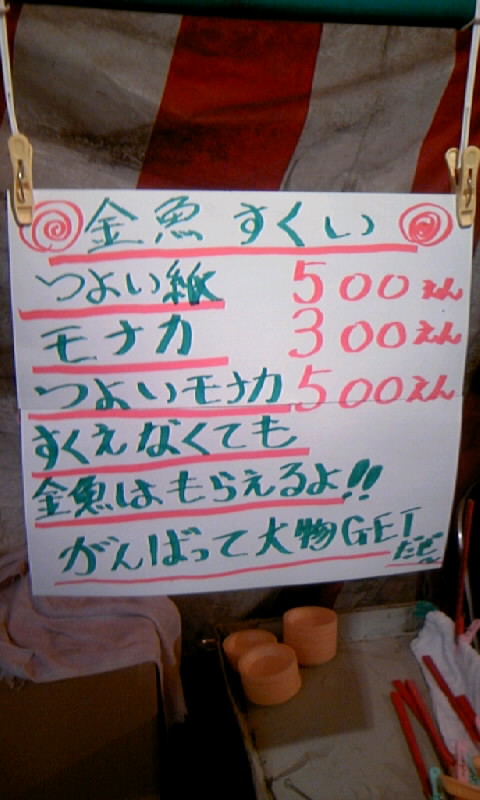 金魚 すくい
つよい紙 500えん
モナカ 300えん
つよいモナカ 500えん
すくえなくても
金魚はもらえるよ!!
がんばって大物GETだぜ〜